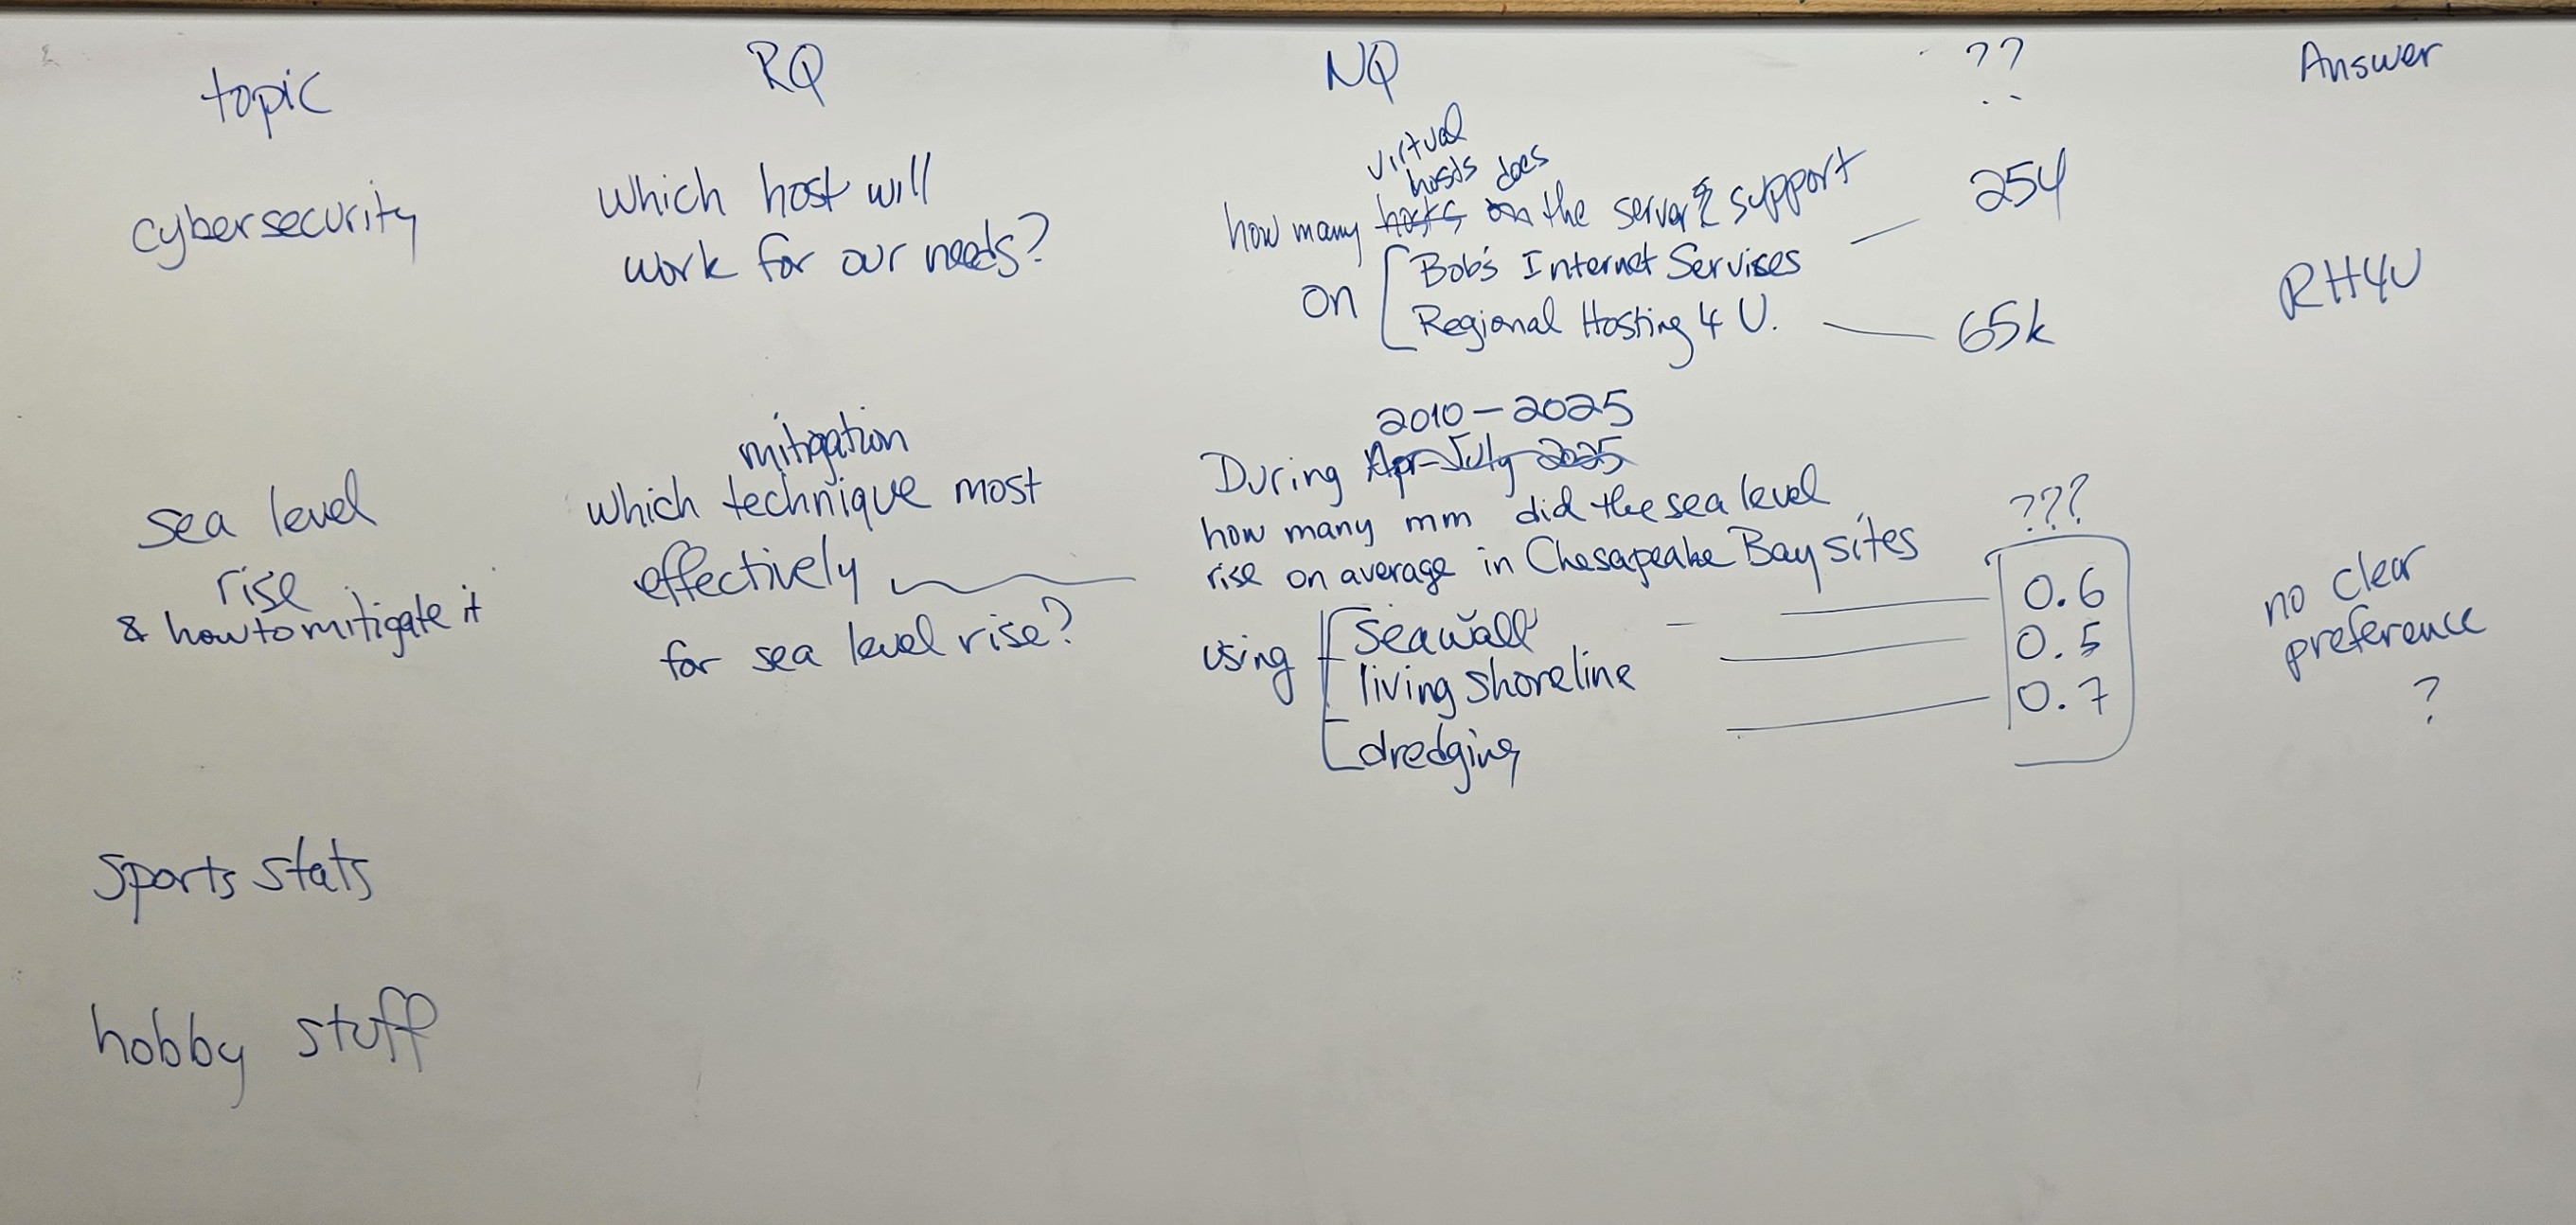 topic RQ NQ ?? Answer
cybersecurity
Which host will
work for our needs?
virtual
hosts does
how many hosts on the server support
on Bob's Internet Services
Regional Hosting 4 U.
254
65k
RH4U
sea level
rise
& how to mitigate it
mitigation
which technique most
effectively
for sea level rise?
2010-2025
During Apr-July 2025
how many mm did the sea level
rise on average in Chesapeake Bay sites
using seawall
living shoreline
dredging
???
0.6
0.5
0.7
no clear
preference
?
sports stats
hobby stuff